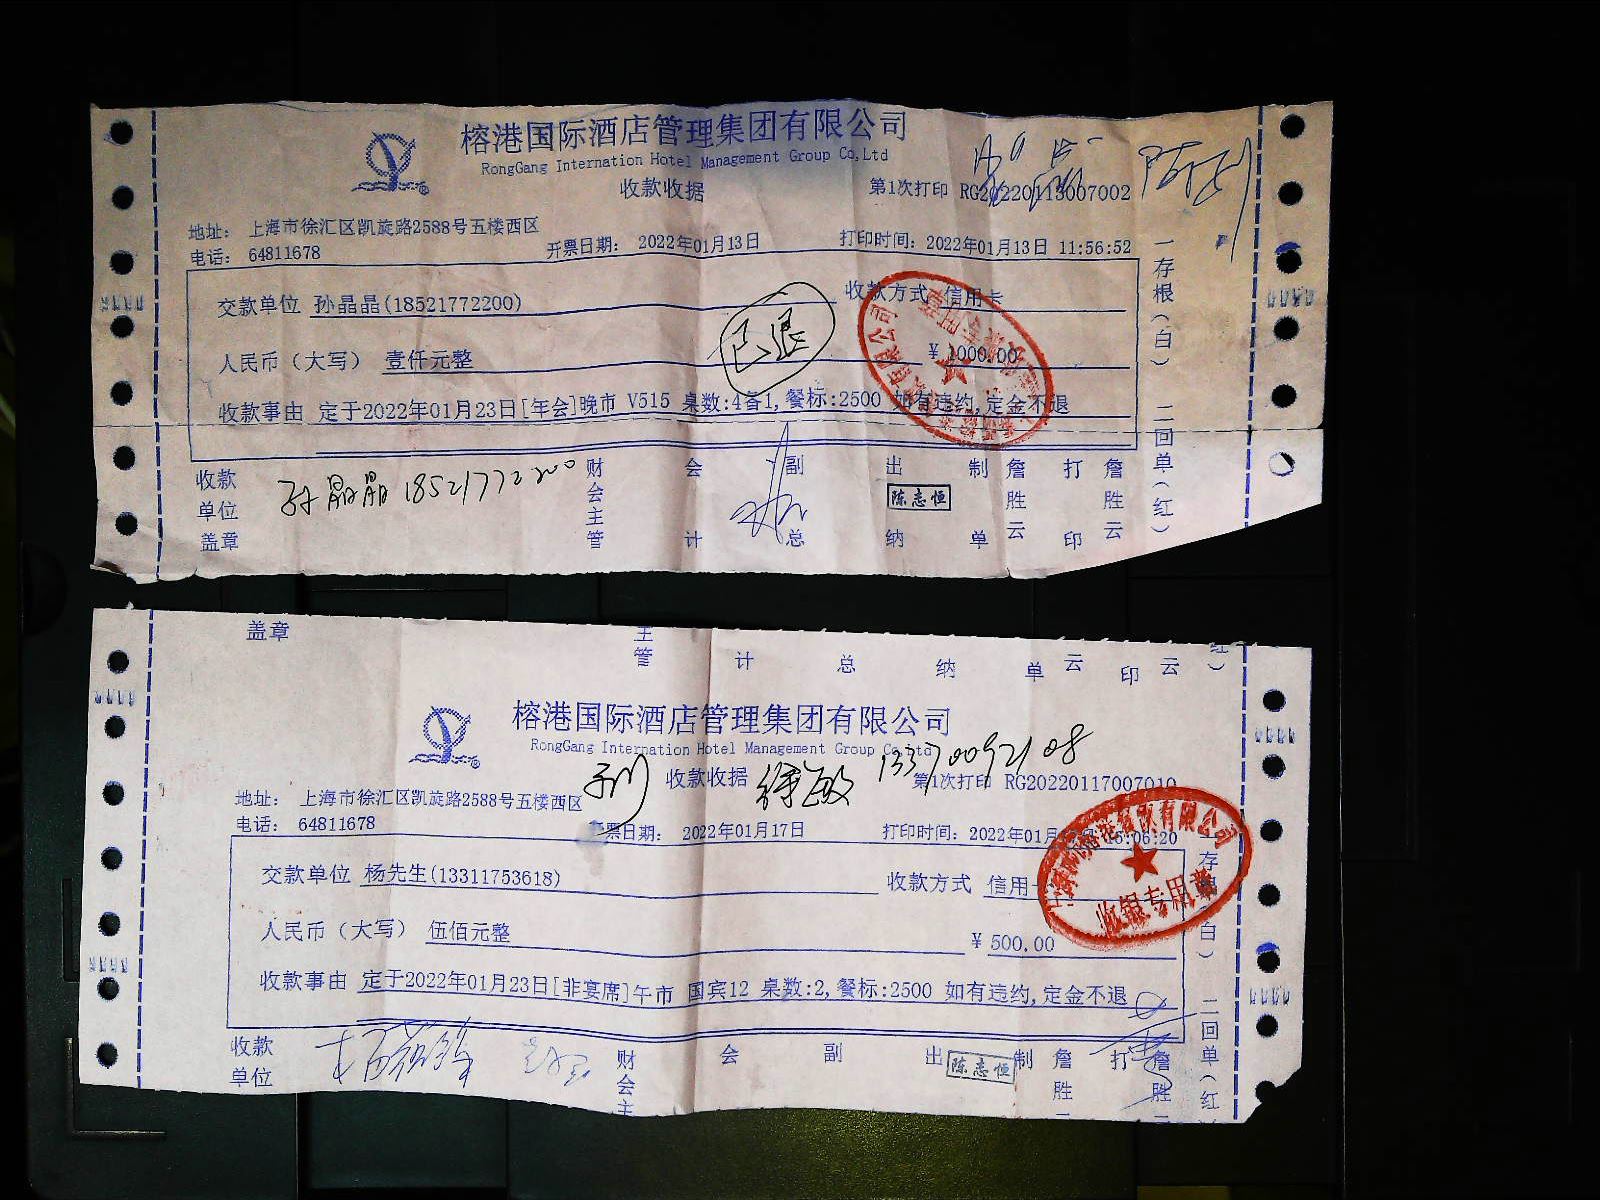 榕港国际酒店管理集团有限公司
RongGang Internation Hotel Management Group Co,Ltd
收款收据
第1次打印 RG20220113007002
地址： 上海市徐汇区凯旋路2588号五楼西区
电话： 64811678
开票日期： 2022年01月13日
打印时间：2022年01月13日 11:56:52
交款单位 孙晶晶(18521772200)
收款方式 信用卡
人民币（大写） 壹仟元整
已退
¥ 1000.00
收款事由 定于2022年01月23日[年会]晚市 V515 桌数:4备1,餐标:2500 如有违约,定金不退
一存根（白） 二回单（红）
收款单位盖章
孙晶晶 18521772200
财会主管
会计
副总
出纳
陈志恒
制单
詹胜云
打印
詹胜云
盖章
主管
计
总
纳
单
云
印
云
红）
榕港国际酒店管理集团有限公司
RongGang Internation Hotel Management Group Co,Ltd
收款收据
徐敏 13370092108
第1次打印 RG20220117007010
地址： 上海市徐汇区凯旋路2588号五楼西区
电话： 64811678
开票日期： 2022年01月17日
打印时间：2022年01月17日 15:06:20
交款单位 杨先生(13311753618)
收款方式 信用卡
收银专用章
人民币（大写） 伍佰元整
¥ 500.00
收款事由 定于2022年01月23日[非宴席]午市 国宾12 桌数:2,餐标:2500 如有违约,定金不退
存根（白） 二回单（红
收款单位
财会主
会
副
出
陈志恒
制
詹胜
打
詹胜